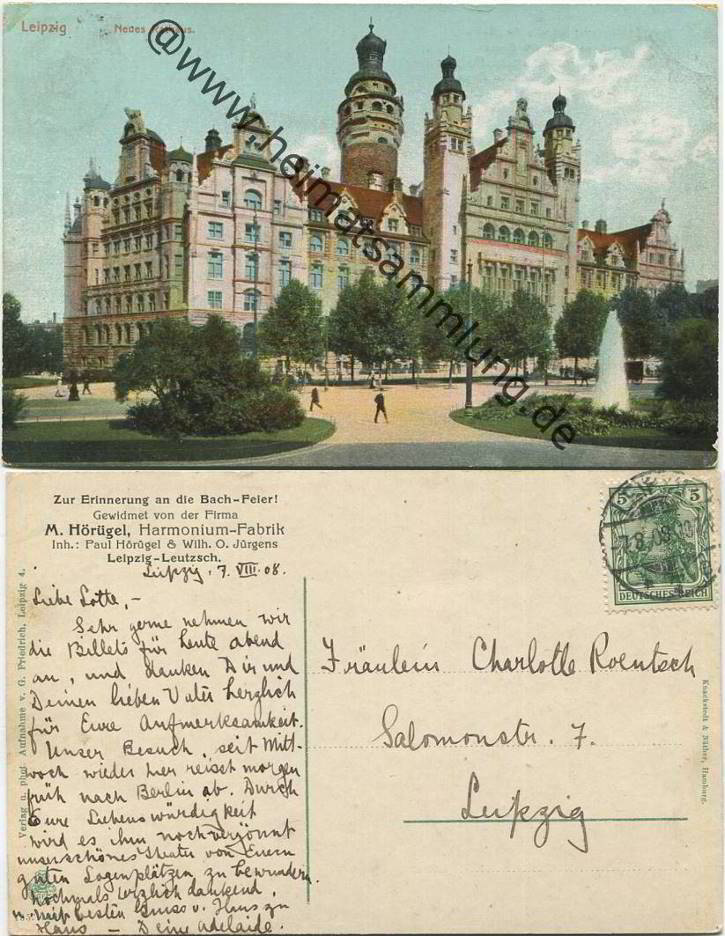 Leipzig
Neues Rathaus.
@www.heimatsammlung.de
Zur Erinnerung an die Bach-Feier!
Gewidmet von der Firma
M. Hörügel, Harmonium-Fabrik
Inh.: Paul Hörügel & Wilh. O. Jürgens
Leipzig-Leutzsch.
Leipzig, 7. VIII. 08.
Liebe Lotte, -
Sehr gerne nehmen wir
die Billets für heute abend
an, und danken Dir und
Deinen lieben Vater herzlich
für Eure Aufmerksamkeit.
Unser Besuch, seit Mitt-
woch wieder hier reist morgen
früh nach Berlin ab. Durch
Eure Liebenswürdigkeit
wird es ihm noch vergönnt
unser schönes Theater von Euern
guten Logenplätzen zu bewundern.
Nochmals herzlich dankend,
u. mit besten Gruss v. Haus zu
Haus - Deine Adelaide.
Verlag u. phot. Aufnahme v. G. Friedrich, Leipzig 4.
5 5
7.8.08
DEUTSCHES REICH
Fräulein Charlotte Roentsch
Salomonstr. 7.
Leipzig
Knackstedt & Näther, Hamburg.